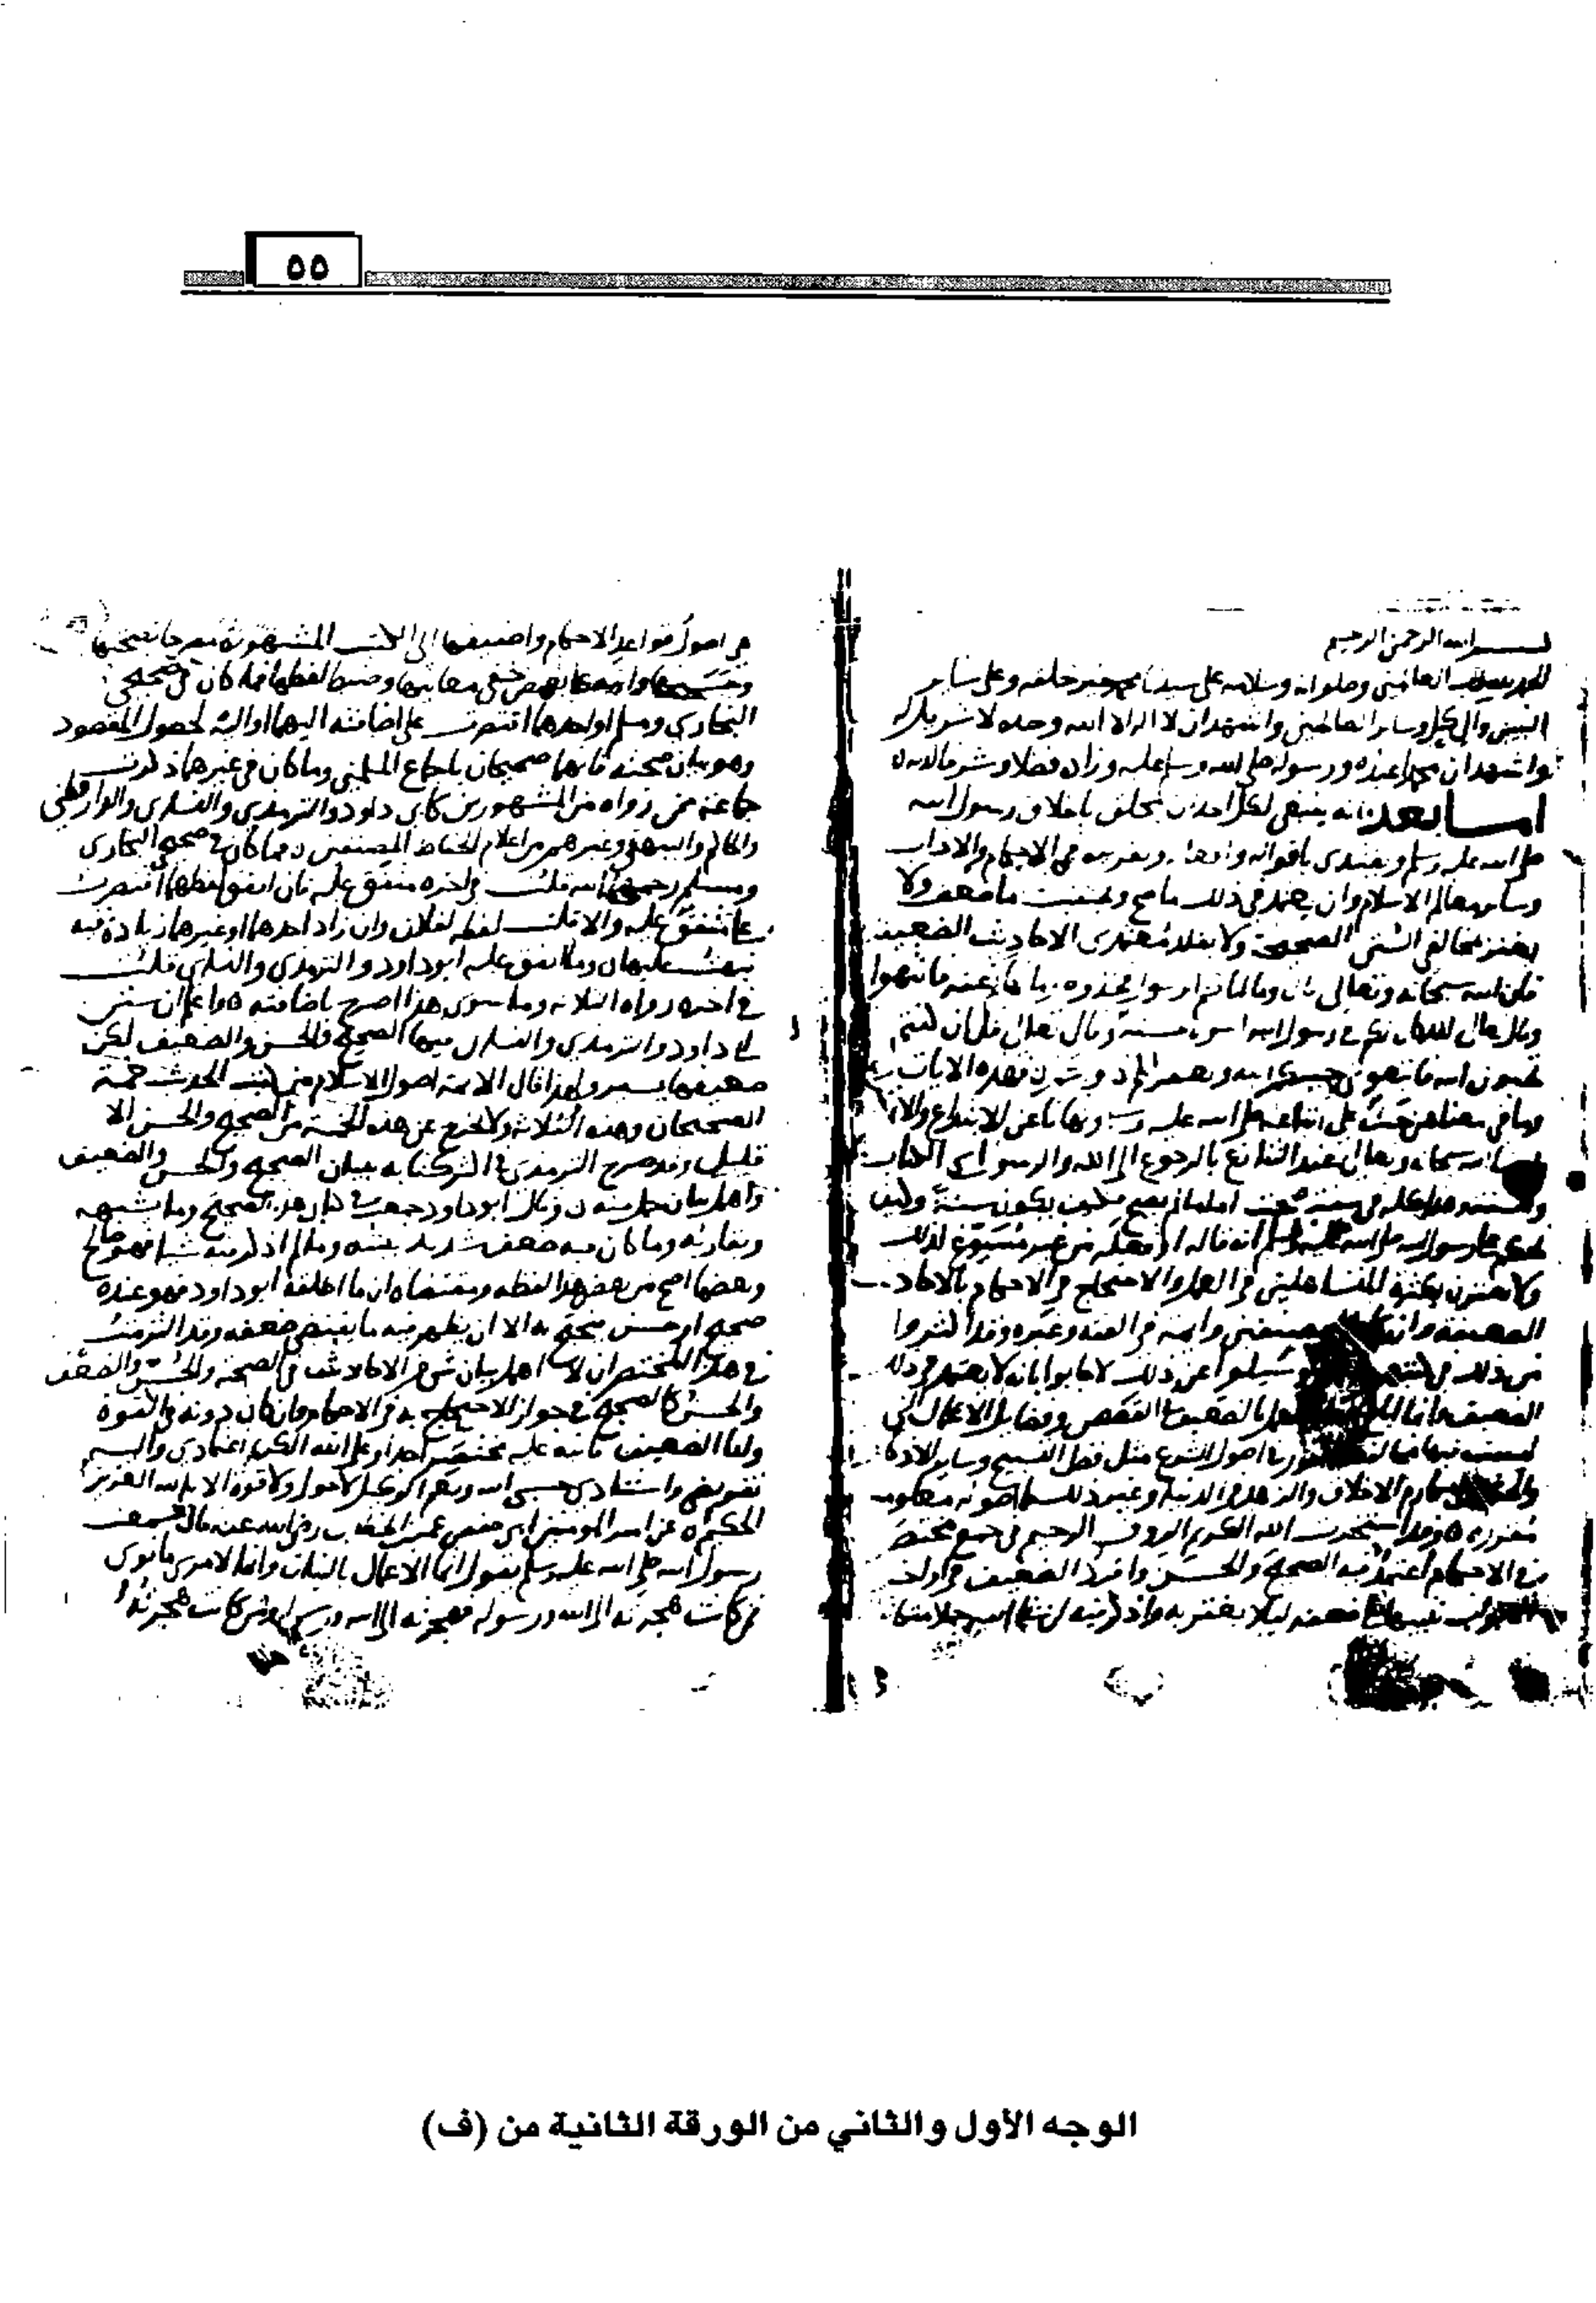 ٥٥
بسم الله الرحمن الرحيم
الحمد لله رب العالمين وصلواته وسلامه على سيدنا محمد خير خلقه وعلى ساير
النبيين وال كل وساير الصالحين واشهد ان لا اله الا الله وحده لا شريك له
واشهد ان محمدا عبده ورسوله صلى الله وسلم عليه وزاده فضلا وشرفا لديه
اما بعد فانه ينبغي لكل احد ان يتخلق باخلاق رسول الله
صلى الله عليه وسلم ويقتدي باقواله وافعاله وتقريره في الاحكام والاداب
وساير معالم الاسلام وان يعتمد في ذلك ما صح ويجتنب ما ضعف ولا
يغتر بمخالفي السنن الصحيحة ولا يقلد معتمدي الاحاديث الضعيفة
فان الله سبحانه وتعالى قال وما اتاكم الرسول فخذوه وما نهاكم عنه فانتهوا
وقال تعالى لقد كان لكم في رسول الله اسوة حسنة وقال تعالى قل ان كنتم
تحبون الله فاتبعوني يحببكم الله ويغفر لكم ذنوبكم فهذه الايات
وما في معناهن حث على اتباعه صلى الله عليه وسلم ونهانا عن الابتداع والاختراع
الله سبحانه وتعالى عند التنازع بالرجوع الى الله والرسول اي الكتاب
والسنة وهذا كله في سنة صحت اما ما لم يصح فكيف يكون سنة وكيف
يحكم على رسول الله صلى الله عليه وسلم انه قاله او فعله من غير مسوغ لذلك
ولا تغترن بكثرة المتساهلين في العمل والاحتجاج في الاحكام بالاحاديث
الضعيفة وان كانوا مصنفين وايمة في الفقه وغيره وقد اكثروا
من ذلك في كتبهم ولو سئلوا عن ذلك لاجابوا بانه لا يعتمد في ذلك
الضعيف وانما العمل بالضعيف في القصص وفضايل الاعمال التي
ليست فيها مخالفة اصول الشرع مثل فضل التسبيح وساير الاذكار
والحث على مكارم الاخلاق والزهد في الدنيا وغير ذلك مما اصوله معلومة
مقررة وقد استخرت الله الكريم الرؤف الرحيم في جمع مختصر
في الاحكام اعتمد فيه الصحيح والحسن وافرد الضعيف في اواخر
الابواب تنبيها على ضعفه ليلا يغتر به واذكر فيه ان شاء الله جملا متكاثرة
هي اصول قواعد الاحكام واضيفها الى الكتب المشهورة مصرحا بصحتها
وحسنها واضحا بعض خفي معانيها وضبط لفظها فما كان في صحيحي
البخاري ومسلم او احدهما اقتصرت على اضافته اليهما او اليه لحصول المقصود
وهو بيان صحته فانهما صحيحان باجماع المسلمين وما كان في غيرهما ذكرت
جماعة ممن رواه من المشهورين كابي داود والترمذي والنسائي والدارقطني
والحاكم والبيهقي وغيرهم من اعلام الحفاظ المصنفين فما كان في صحيحي البخاري
ومسلم رحمهما الله قلت في اخره متفق عليه فان اتفق لفظهما اقتصرت
على متفق عليه والا قلت لفظه لفلان وان زاد احدهما او غيرهما زيادة فيه
نبهت عليها وما اتفق عليه ابو داود والترمذي والنسائي قلت
في اخره رواه الثلاثة وما سوى هذا اصرح باضافته واعلم ان سنن
ابي داود والترمذي والنسائي فيها الصحيح والحسن والضعيف لكن
ضعيفها يسير ولهذا قال الايمة اصول الاسلام من كتب الحديث خمسة
الصحيحان وهذه الثلاثة ولا يخرج عن هذه الخمسة من الصحيح والحسن الا
قليل وقد صرح الترمذي في اكثر كتابه ببيان الصحيح والحسن والضعيف
واهمل بيان جملة منه وقال ابو داود جمعت في كتابي هذا الصحيح وما يشبهه
ويقاربه وما كان فيه ضعف شديد بينته وما لم اذكر فيه شيا فهو صالح
وبعضها اصح من بعض هذا لفظه ومقتضاه ان ما اطلقه ابو داود فهو عنده
صحيح او حسن يحتج به الا ان يظهر فيه ما يقتضي ضعفه وقد التزمت
في هذا المختصر ان لا اهمل بيان شي من الاحاديث في الصحة والحسن والضعف
والحسن كالصحيح في جواز الاحتجاج به في الاحكام وان كان دونه في القوة
وعلى الله الكريم اعتمادي واليه
تفويضي واستنادي حسبي الله ونعم الوكيل لا حول ولا قوة الا بالله العزيز
الحكيم عن امير المومنين ابي حفص عمر بن الخطاب رضي الله عنه قال سمعت
رسول الله صلى الله عليه وسلم يقول انما الاعمال بالنيات وانما لامرى ما نوى
فمن كانت هجرته الى الله ورسوله فهجرته الى الله ورسوله ومن كانت هجرته
الوجه الأول والثاني من الورقة الثانية من (ف)